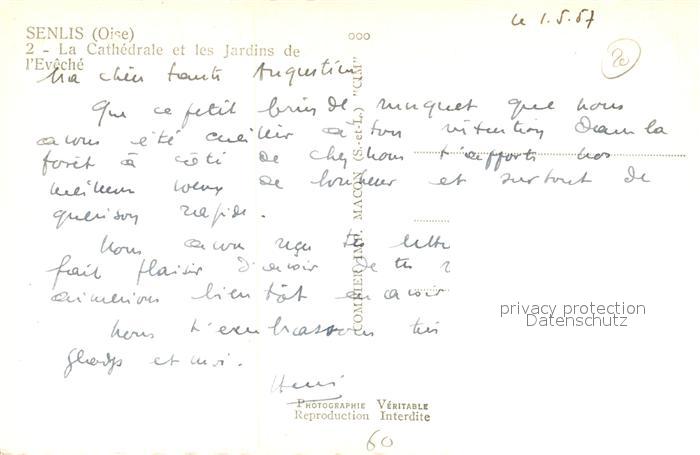 le 1.5.57
SENLIS (Oise)
2 - La Cathédrale et les Jardins de
l'Evêché
20
Ma chère tante Augustine
Que ce petit brin de muguet que nous
avons été cueillir à ton intention dans la
forêt à côté de chez nous t'apporte nos
meilleurs voeux de bonheur et surtout de
guérison rapide.
Nous avons reçu ta lettre
fait plaisir d'avoir de tes
aimerions bientôt en avoir
Nous t'embrassons
Gladys et moi.
Henri
COMBIER IMP. MACON (S.-et-L.) "CIM"
privacy protection
Datenschutz
PHOTOGRAPHIE VÉRITABLE
Reproduction Interdite
60